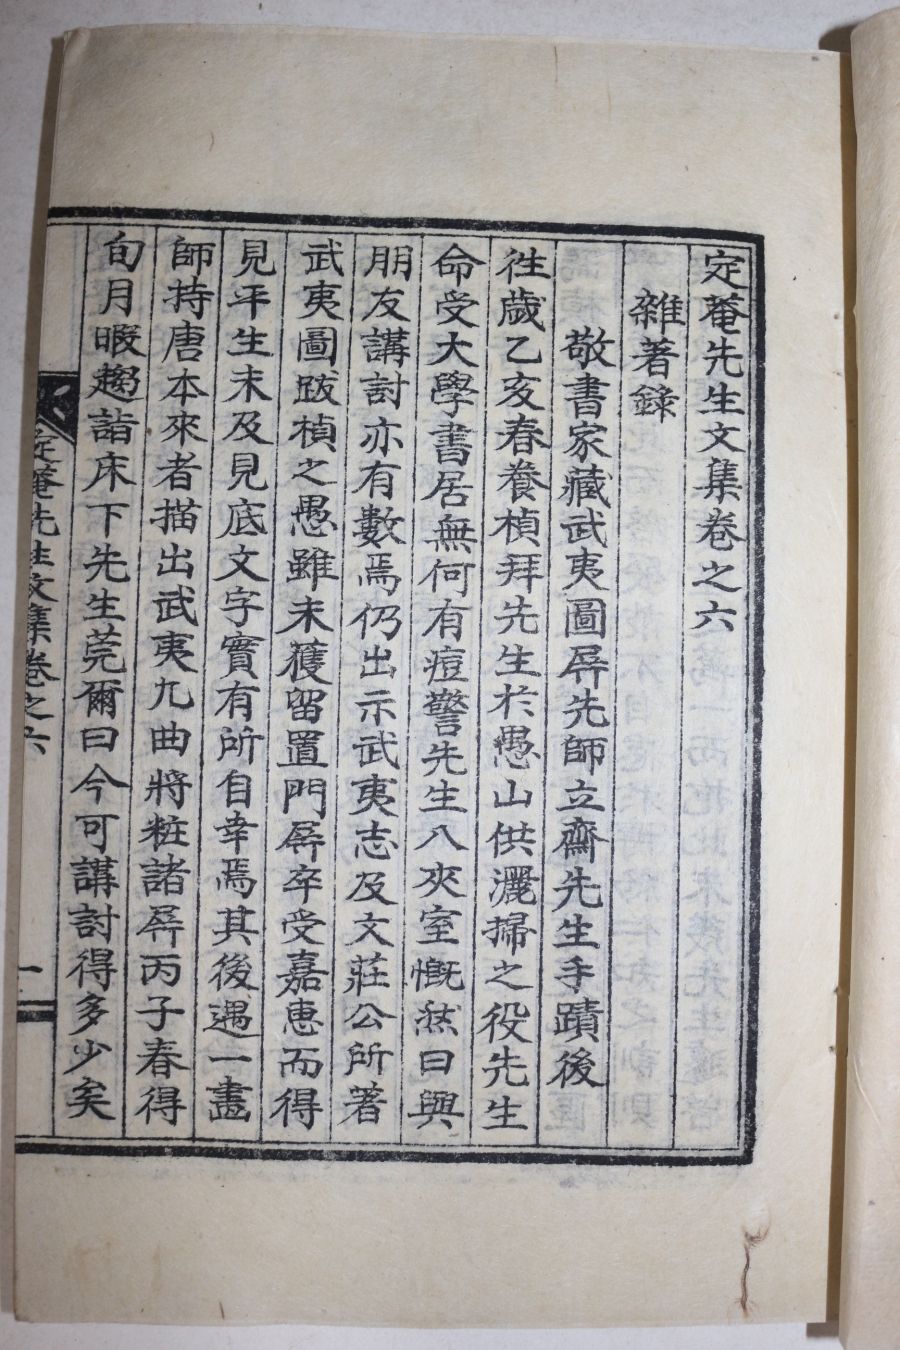 定菴先生文集卷之六
雜著錄
敬書家藏武夷圖屛先師立齋先生手蹟後
徃歲乙亥春養楨拜先生於愚山供灑掃之役先生
命受大學書居無何有痘警先生入夾室慨然曰與
朋友講討亦有數焉仍出示武夷志及文莊公所著
武夷圖跋楨之愚雖未獲留置門屛卒受嘉惠而得
見平生未及見底文字實有所自幸焉其後遇一畵
師持唐本來者描出武夷九曲將粧諸屛丙子春得
旬月暇趨詣床下先生莞爾曰今可講討得多少矣
定菴先生文集卷之六
一